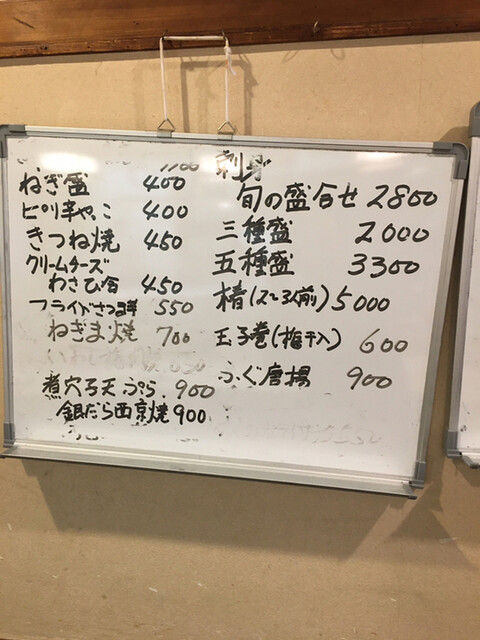 ねぎ盛 400
ピリ辛やっこ 400
きつね焼 450
クリームチーズ
わさび合 450
フライドさつま芋 550
ねぎま焼 700
煮穴子天ぷら 900
銀だら西京焼 900
刺身
旬の盛合せ 2800
三種盛 2000
五種盛 3300
椿(2〜3人前) 5000
玉子巻(梅干入) 600
ふぐ唐揚 900